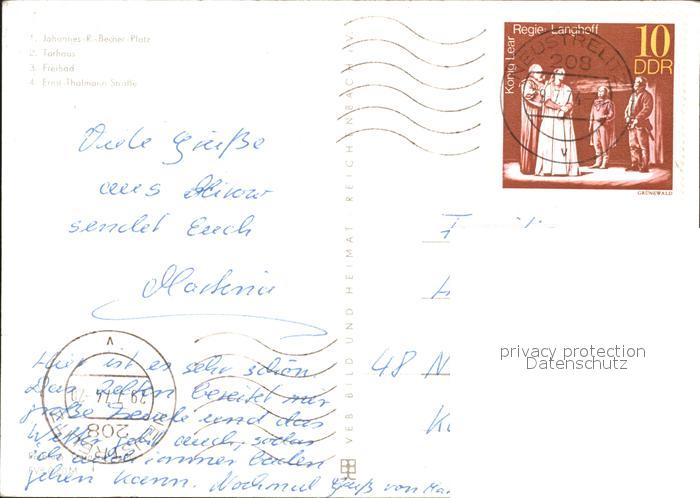 1. Johannes-R.-Becher-Platz
2. Torhaus
3. Freibad
4. Ernst-Thälmann-Straße
König Lear
Regie: Langhoff
10
DDR
NEUSTRELITZ
208
GRÜNEWALD
Viele Grüße
aus Mirow
sendet Euch
Martina
VEB BILD UND HEIMAT REICHENBACH i.V.
privacy protection
Datenschutz
48 N
Hier ist es sehr schön.
Das Zelten bereitet mir
große Freude und das
Wetter geht auch, sodas
ich auch immer baden
gehen kann. Nochmal Gruß von Ma
208